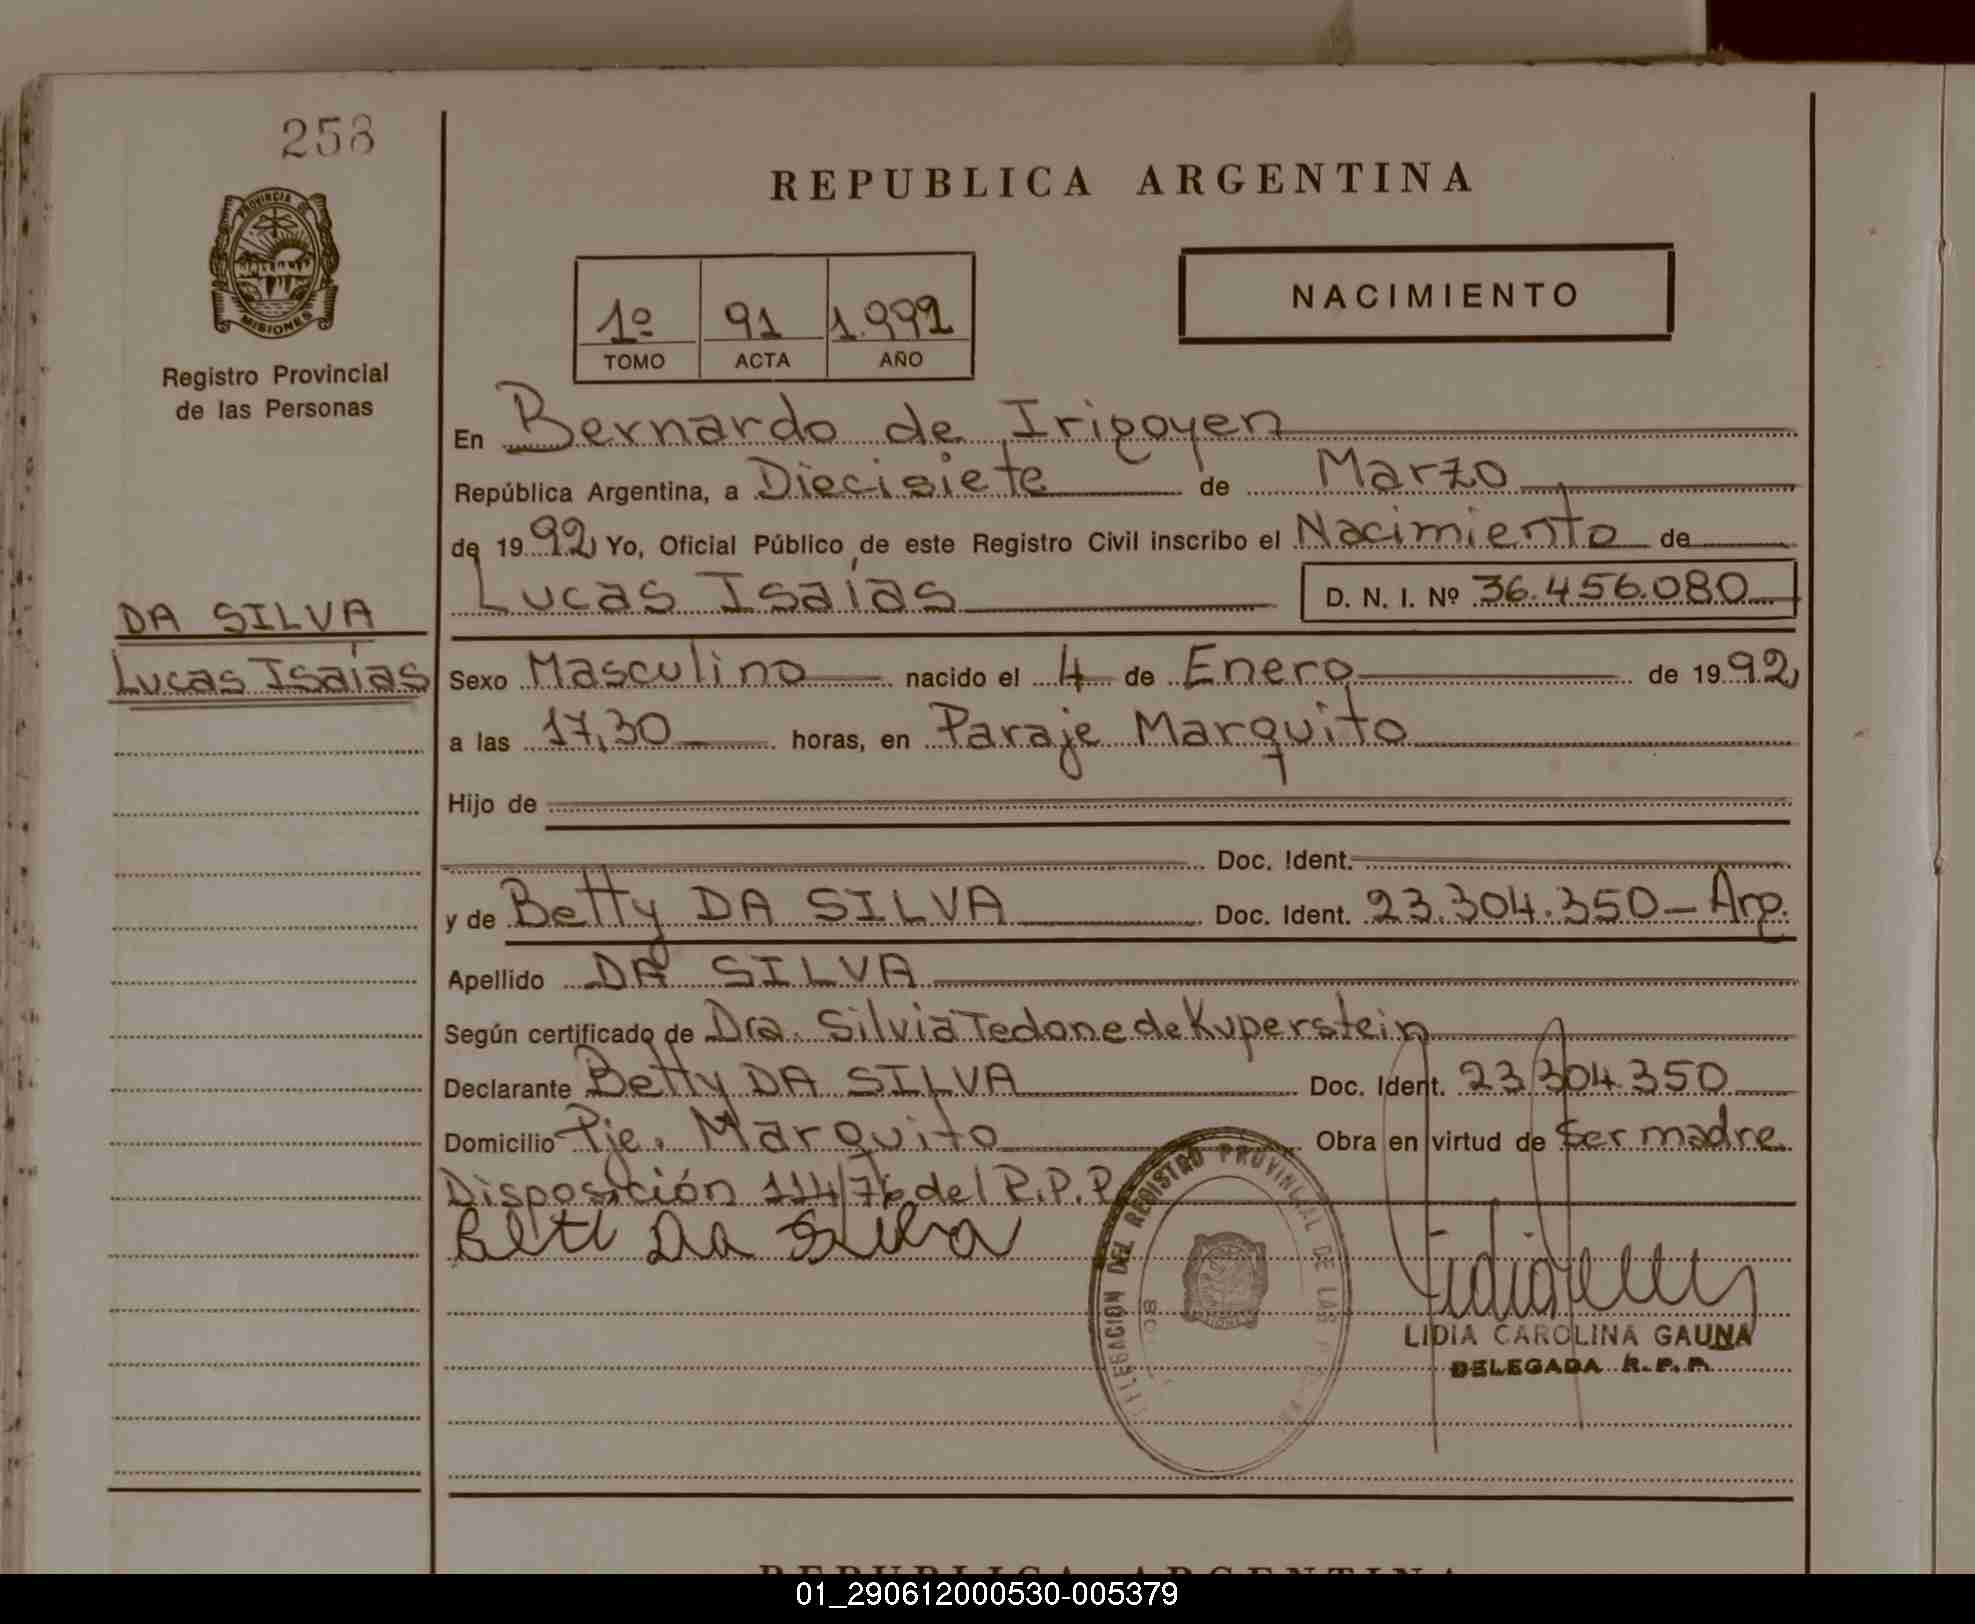 258
PROVINCIA DE
MISIONES
Registro Provincial
de las Personas
DA SILVA
Lucas Isaías
REPUBLICA ARGENTINA
1º 91 1.992
TOMO ACTA AÑO
NACIMIENTO
En Bernardo de Irigoyen
República Argentina, a Diecisiete de Marzo
de 1992 Yo, Oficial Público de este Registro Civil inscribo el Nacimiento de
Lucas Isaías D. N. I. Nº 36.456.080
Sexo Masculino nacido el 4 de Enero de 1992
a las 17,30 horas, en Paraje Marquito
Hijo de
Doc. Ident.
y de Betty DA SILVA Doc. Ident. 23.304.350 - Arg.
Apellido DA SILVA
Según certificado de Dra. Silvia Tedone de Kuperstein
Declarante Betty DA SILVA Doc. Ident. 23.304.350
Domicilio Pje. Marquito Obra en virtud de ser madre
Disposición 114/76 del R.P.P.
Beti Da Silva
DELEGACION DEL REGISTRO PROVINCIAL DE LAS
LIDIA CAROLINA GAUNA
DELEGADA R.P.P.
REPUBLICA ARGENTINA
01_290612000530-005379